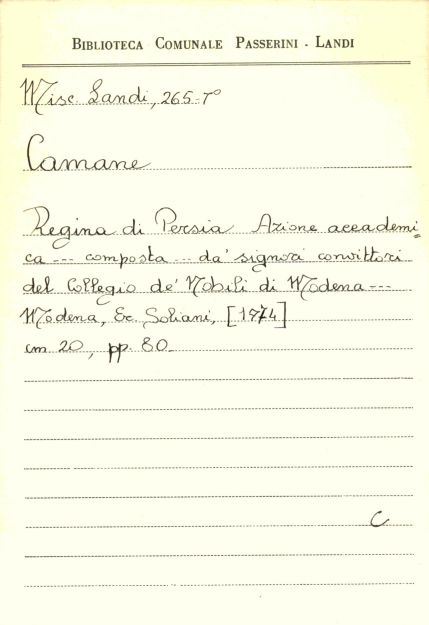 BIBLIOTECA COMUNALE PASSERINI - LANDI
Misc. Landi, 265-7°
Camane
Regina di Persia Azione accademi=
ca --- composta --- da' signori convittori
del Collegio de' Nobili di Modena ---
Modena, Er. Soliani, [1774]
cm 20, pp. 80
C